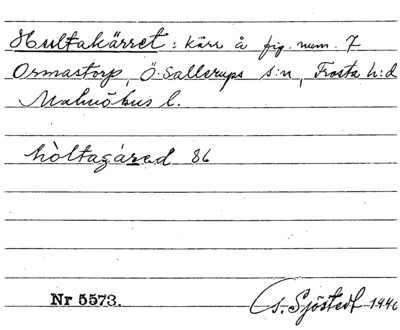 Hultakärret: kärr å fig. num. 7
Ormastorp, Ö. Sallerups s:n, Frosta h:d
Malmöhus l.
hòltagárad 86
Nr 5573.
G. Sjöstedt 1940